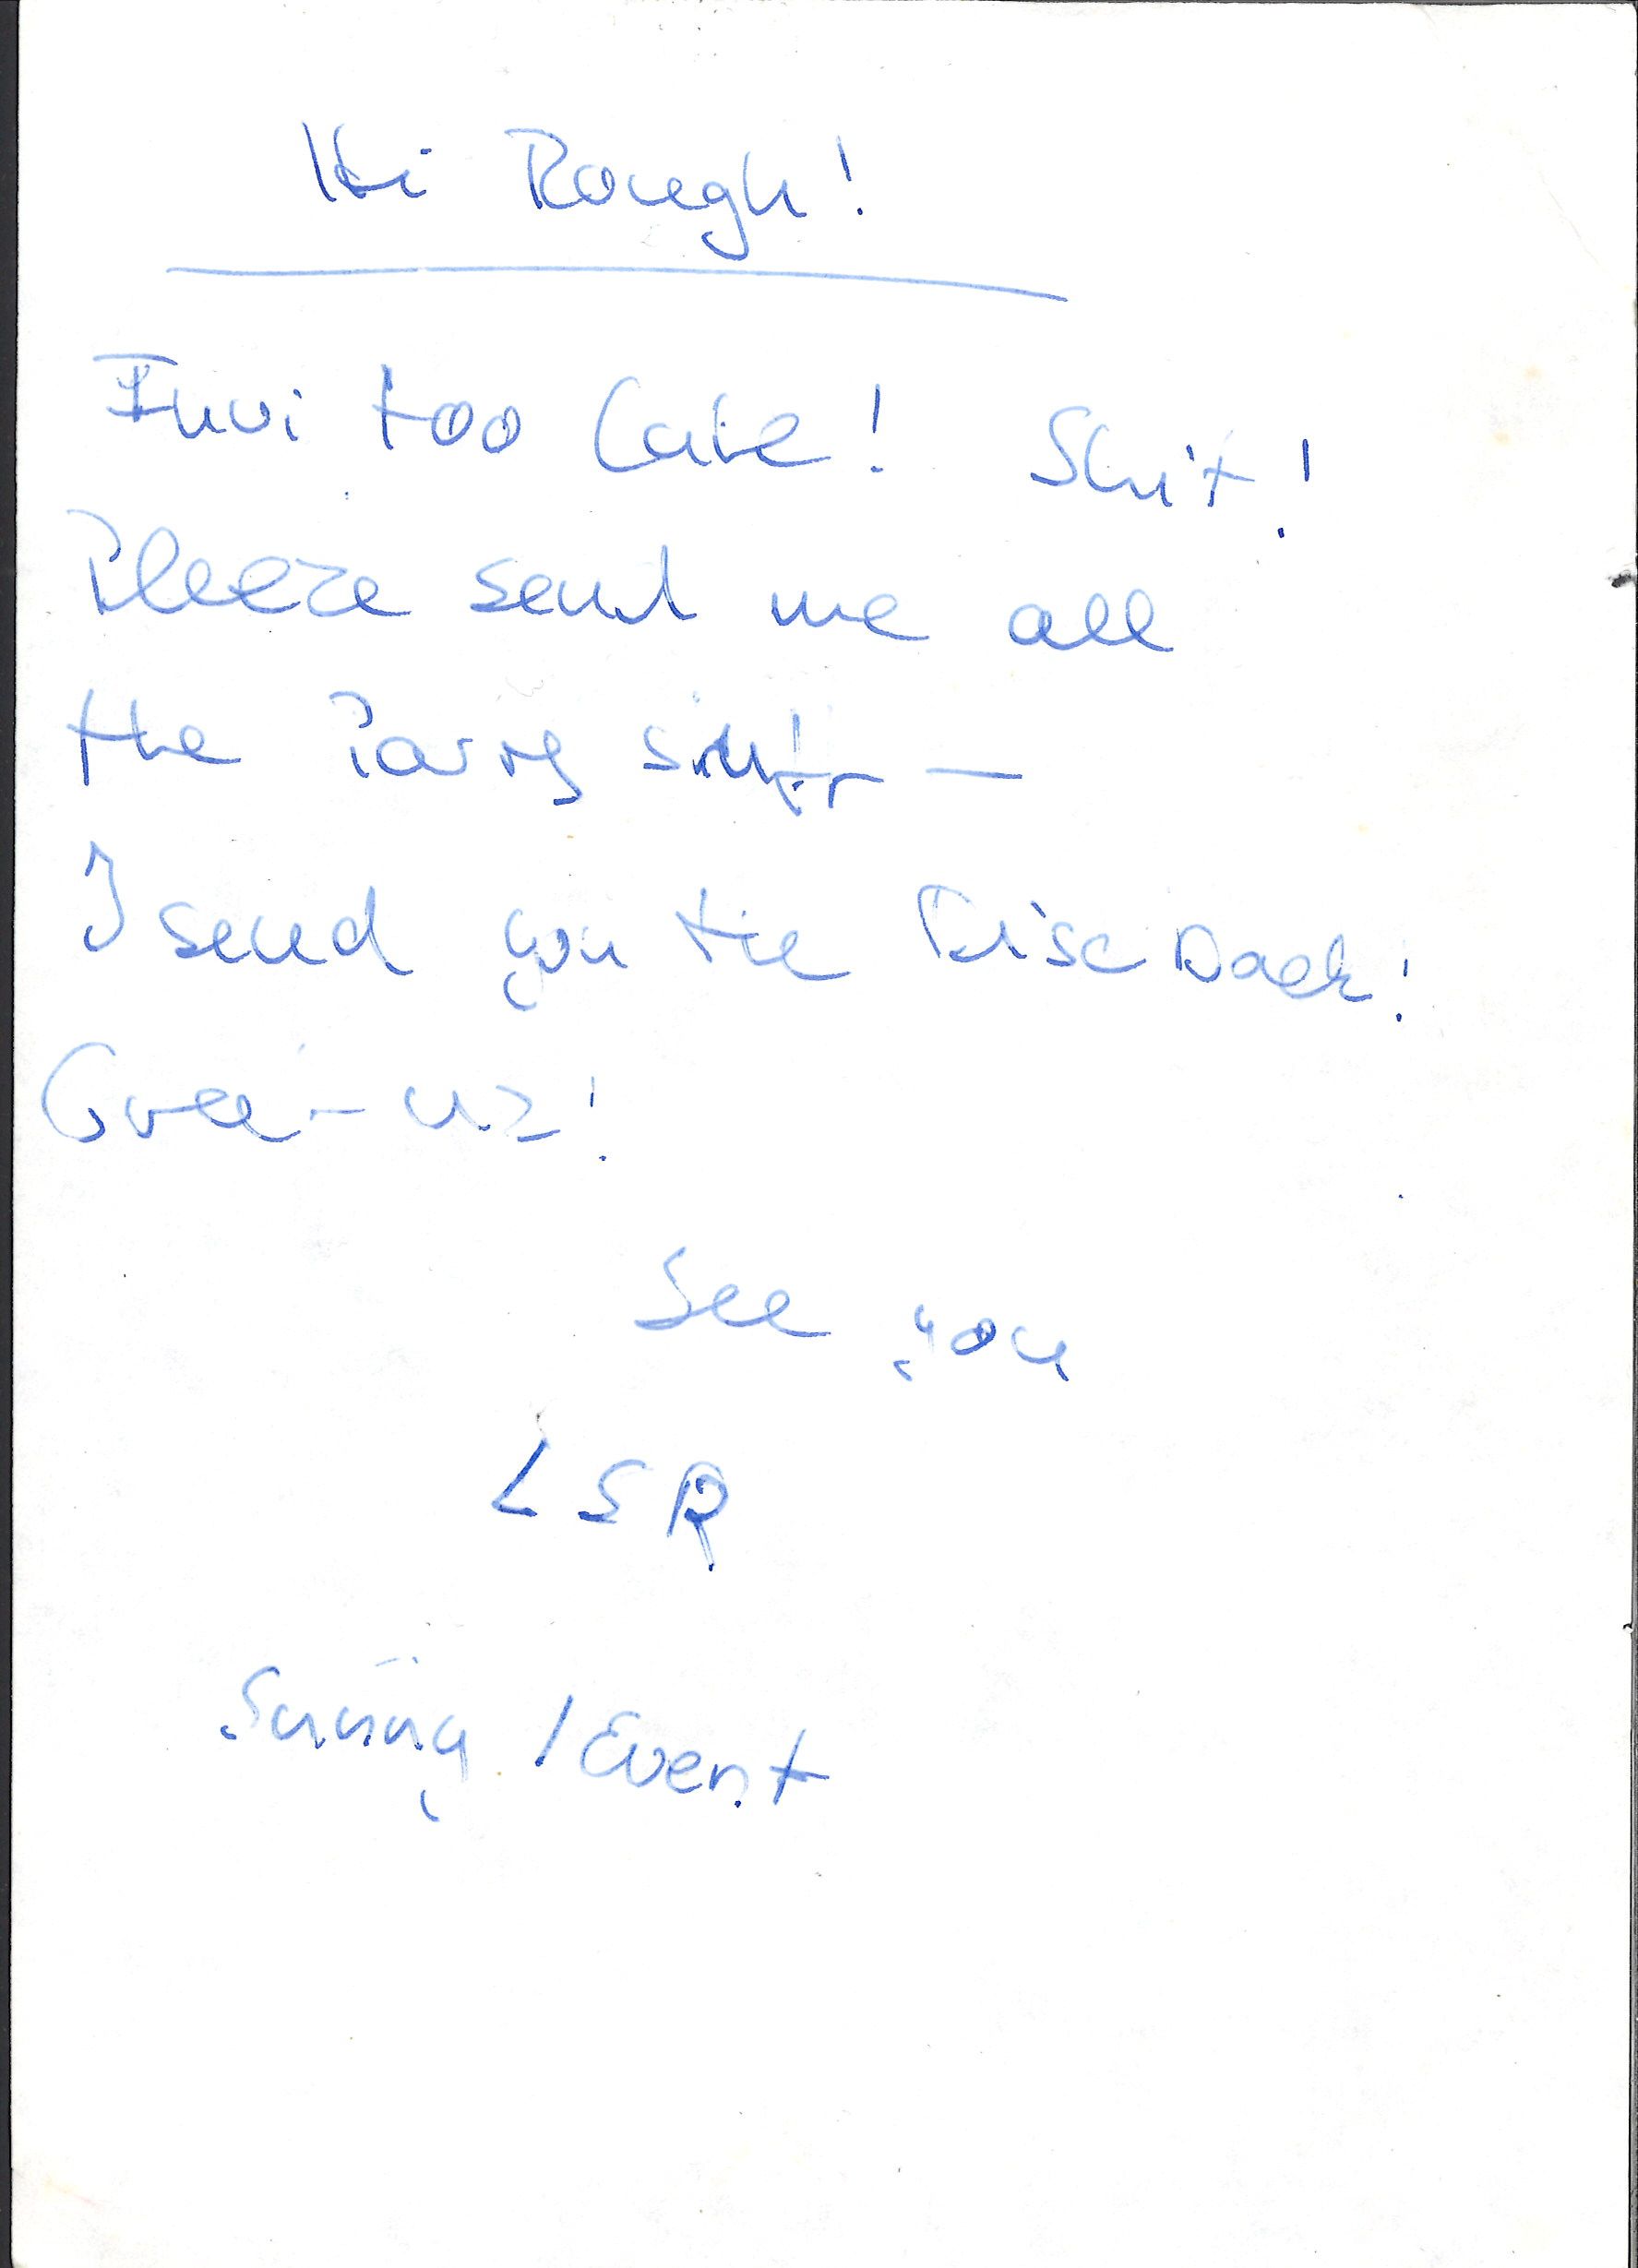 Hi Rough!
Invi too late! Shit!
Pleeze send me all
the Party stuff —
I send you the Disc back!
Greetz!
See you
LSR
/ Event